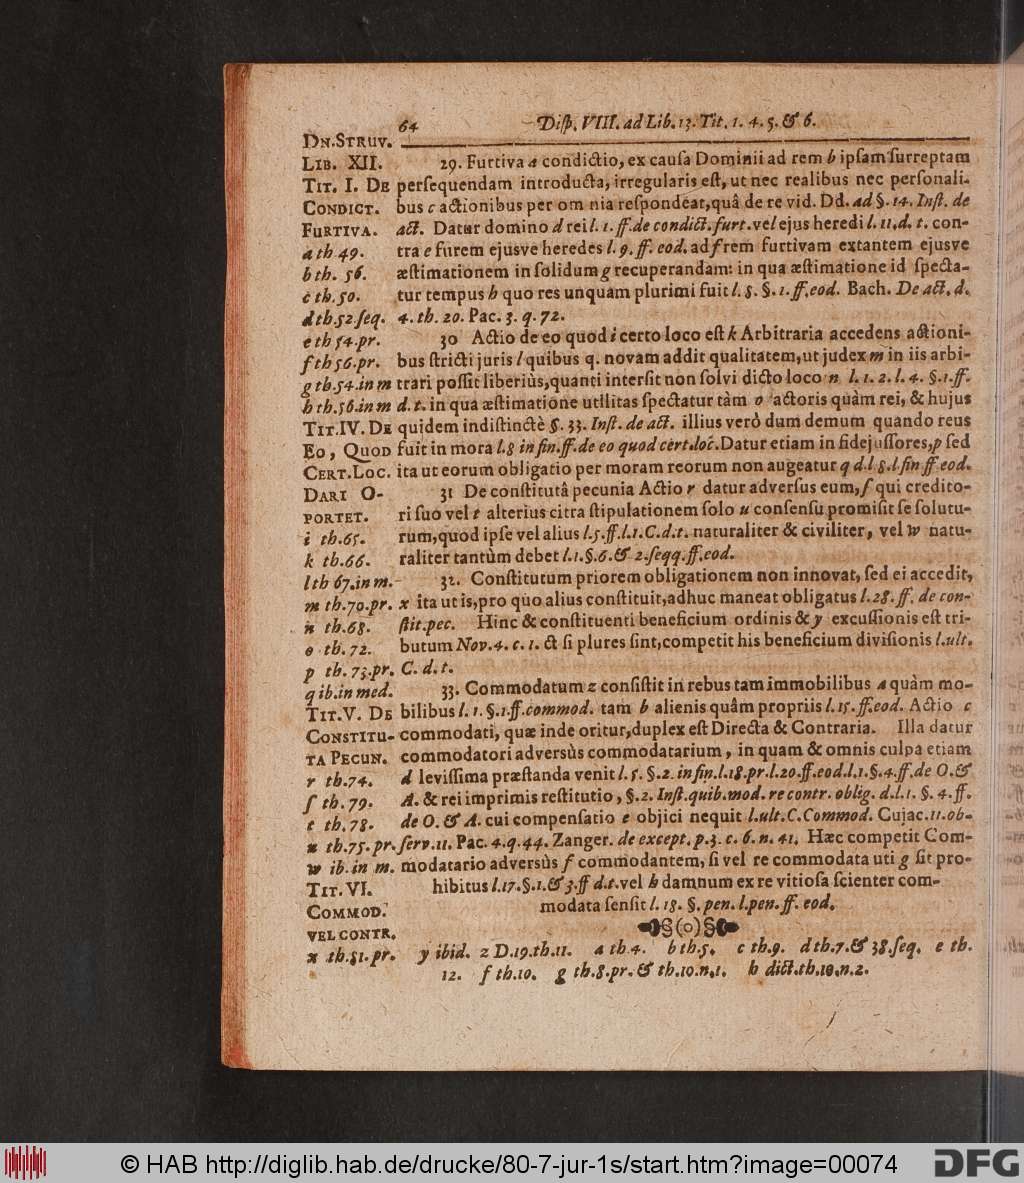 64 Diſp. VIII. ad Lib. 13. Tit. 1. 4. 5. & 6.
DN. STRUV.
LIB. XII.
TIT. I. DE
CONDICT.
FURTIVA.
a th 49.
b th. 56.
c th. 50.
d th. 52 ſeq.
e th 54. pr.
f th 56. pr.
g th. 54. in m
h th. 56. in m
TIT. IV. DE
EO, QUOD
CERT. LOC.
DARI O-
PORTET.
i th. 65.
k th. 66.
l th 67. in m.
m th. 70. pr.
n th. 68.
o th. 72.
p th. 73. pr.
q ib. in med.
TIT. V. DE
CONSTITU-
TA PECUN.
r th. 74.
ſ th. 79.
t th. 78.
u th. 75. pr.
w ib. in m.
TIT. VI.
COMMOD.
VEL CONTR.
x th. 81. pr.
29. Furtiva a condictio, ex cauſa Dominii ad rem b ipſam ſurreptam
perſequendam introducta, irregularis eſt, ut nec realibus nec perſonali-
bus c actionibus per omnia reſpondeat, quâ de re vid. Dd. ad §. 14. Inſt. de
act. Datur domino d rei l. 1. ff. de condict. furt. vel ejus heredi l. 11. d. t. con-
tra e furem ejusve heredes l. 9. ff. eod. ad f rem furtivam extantem ejusve
æſtimationem in ſolidum g recuperandam: in qua æſtimatione id ſpecta-
tur tempus h quo res unquam plurimi fuit l. 8. §. 1. ff. eod. Bach. De act. d.
4. th. 20. Pac. 3. q. 72.
30 Actio de eo quod i certo loco eſt k Arbitraria accedens actioni-
bus ſtricti juris l quibus q. novam addit qualitatem, ut judex m in iis arbi-
trari poſſit liberiùs, quanti interſit non ſolvi dicto loco n l. 1. 2. l. 4. §. 1. ff.
d. t. in qua æſtimatione utilitas ſpectatur tàm o actoris quàm rei, & hujus
quidem indiſtinctè §. 33. Inſt. de act. illius verò dum demum quando reus
fuit in mora l. 8 in fin. ff. de eo quod cert. loc. Datur etiam in fidejuſſores, p ſed
ita ut eorum obligatio per moram reorum non augeatur q d. l 8. l fin ff eod.
31 De conſtitutâ pecunia Actio r datur adverſus eum, ſ qui credito-
ri ſuo vel t alterius citra ſtipulationem ſolo u conſenſu promiſit ſe ſolutu-
rum, quod ipſe vel alius l. 5. ff. l. 1. C. d. t. naturaliter & civiliter, vel w natu-
raliter tantùm debet l. 1. §. 6. & 2. ſeqq. ff. eod.
32. Conſtitutum priorem obligationem non innovat, ſed ei accedit,
x ita ut is, pro quo alius conſtituit, adhuc maneat obligatus l. 28. ff. de con-
ſtit. pec. Hinc & conſtituenti beneficium ordinis & y excuſſionis eſt tri-
butum Nov. 4. c. 1. & ſi plures ſint, competit his beneficium diviſionis l. ult.
C. d. t.
33. Commodatum z conſiſtit in rebus tam immobilibus a quàm mo-
bilibus l. 1. §. 1. ff. commod. tam b alienis quâm propriis l. 15. ff. eod. Actio c
commodati, quæ inde oritur, duplex eſt Directa & Contraria. Illa datur
commodatori adversùs commodatarium, in quam & omnis culpa etiam
d leviſſima præſtanda venit l. 5. §. 2. in fin. l. 18. pr. l. 20. ff. eod. l. 1. §. 4. ff. de O. &
A. & rei imprimis reſtitutio, §. 2. Inſt. quib. mod. re contr. oblig. d. l. 1. §. 4. ff.
de O. & A. cui compenſatio e objici nequit l. ult. C. Commod. Cujac. 11. ob-
ſerv. 11. Pac. 4. q. 44. Zanger. de except. p. 3. c. 6. n. 41. Hæc competit Com-
modatario adversùs f commodantem, ſi vel re commodata uti g ſit pro-
hibitus l. 17. §. 1. & 3. ff d. t. vel h damnum ex re vitioſa ſcienter com-
modata ſenſit l. 18. §. pen. l. pen. ff. eod.
y ibid. z D. 19. th. 11. a th 4. b th. 5. c th. 9. d th. 7. & 38. ſeq. e th.
12. f th. 10. g th. 8. pr. & th. 10. n. 1. h dict. th. 10. n. 2.
© HAB http://diglib.hab.de/drucke/80-7-jur-1s/start.htm?image=00074
DFG